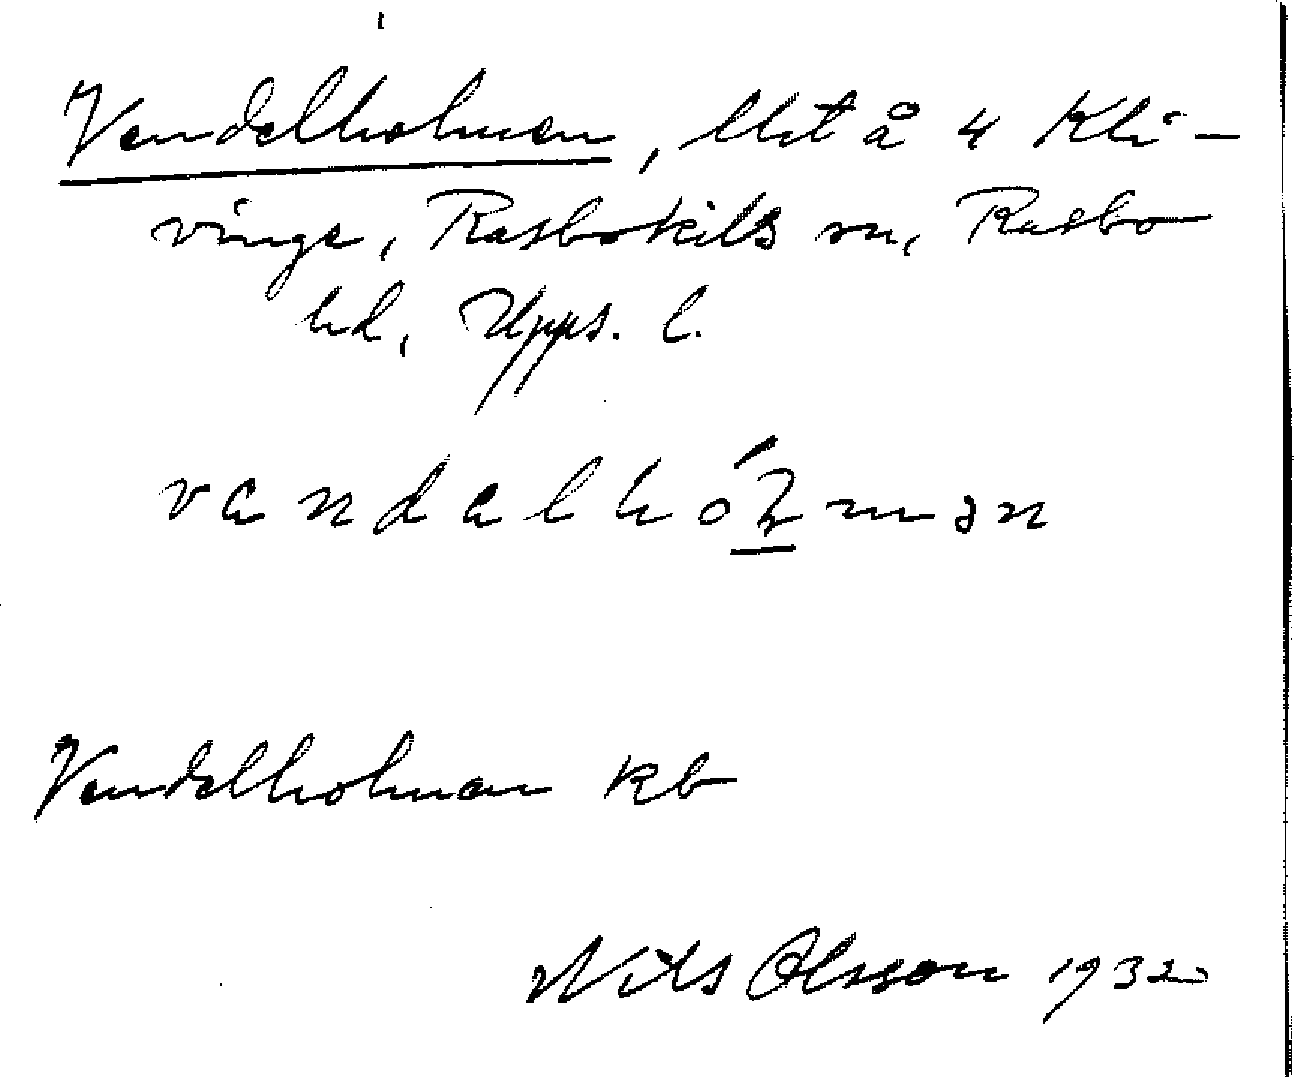 Vendelholmen, lht å 4 Kli-
vinge, Rasbokils sn, Rasbo
hd, Upps. l.
Vendelholmen kb
Nils Olsson 1932